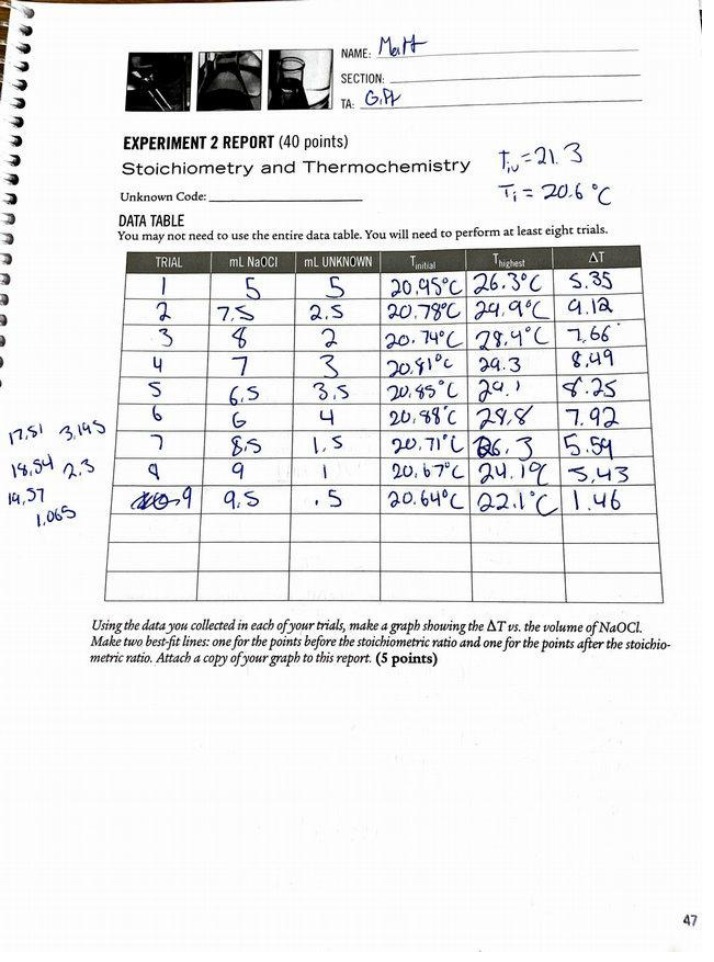 NAME: Matt
SECTION:
TA: G.A
EXPERIMENT 2 REPORT (40 points)
Stoichiometry and Thermochemistry
Tiu = 21.3
Ti = 20.6 °C
Unknown Code:
DATA TABLE
You may not need to use the entire data table. You will need to perform at least eight trials.
TRIAL mL NaOCl mL UNKNOWN Tinitial Thighest ΔT
1 5 5 20.95°C 26.3°C 5.35
2 7.5 2.5 20.78°C 29.9°C 9.12
3 8 2 20.74°C 28.4°C 7.66
4 7 3 20.81°C 29.3 8.49
5 6.5 3.5 20.85°C 29.1 8.25
6 6 4 20.88°C 28.8 7.92
17.51 3.195
7 8.5 1.5 20.71°C 26.3 5.59
18.54 2.3
8 9 1 20.67°C 24.1°C 3.43
19.57
9 9.5 .5 20.64°C 22.1°C 1.46
1.065
Using the data you collected in each of your trials, make a graph showing the ΔT vs. the volume of NaOCl.
Make two best-fit lines: one for the points before the stoichiometric ratio and one for the points after the stoichio-
metric ratio. Attach a copy of your graph to this report. (5 points)
47